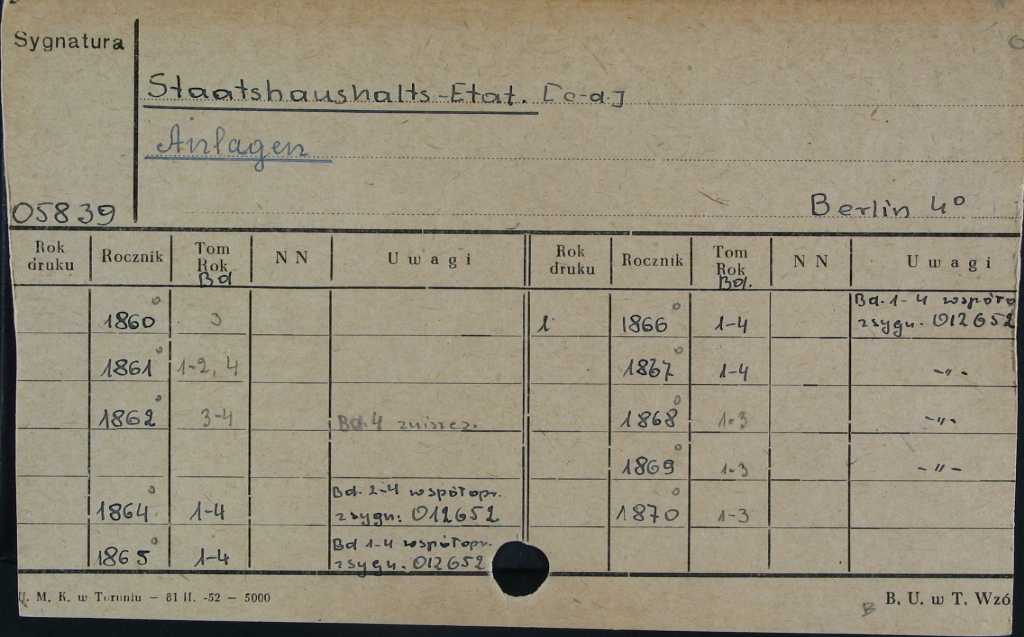 Sygnatura
Staatshaushalts-Etat. [c-a.]
Anlagen
05839 Berlin 4°
Rok druku Rocznik Tom Rok Bd NN Uwagi Rok druku Rocznik Tom Rok Bd. NN Uwagi
1860° 3 1 1866° 1-4 Bd. 1-4 współo
z sygn. 012652
1861° 1-2, 4 1867° 1-4 -"-
1862° 3-4 Bd. 4 zniszcz. 1868° 1-3 -"-
1869° 1-3 -"-
1864° 1-4 Bd. 2-4 współopr.
z sygn. 012652 1870° 1-3
1865° 1-4 Bd 1-4 współopr.
z sygn. 012652
U. M. K. w Toruniu – 81 II. -52 – 5000 B B. U. w T. Wzó